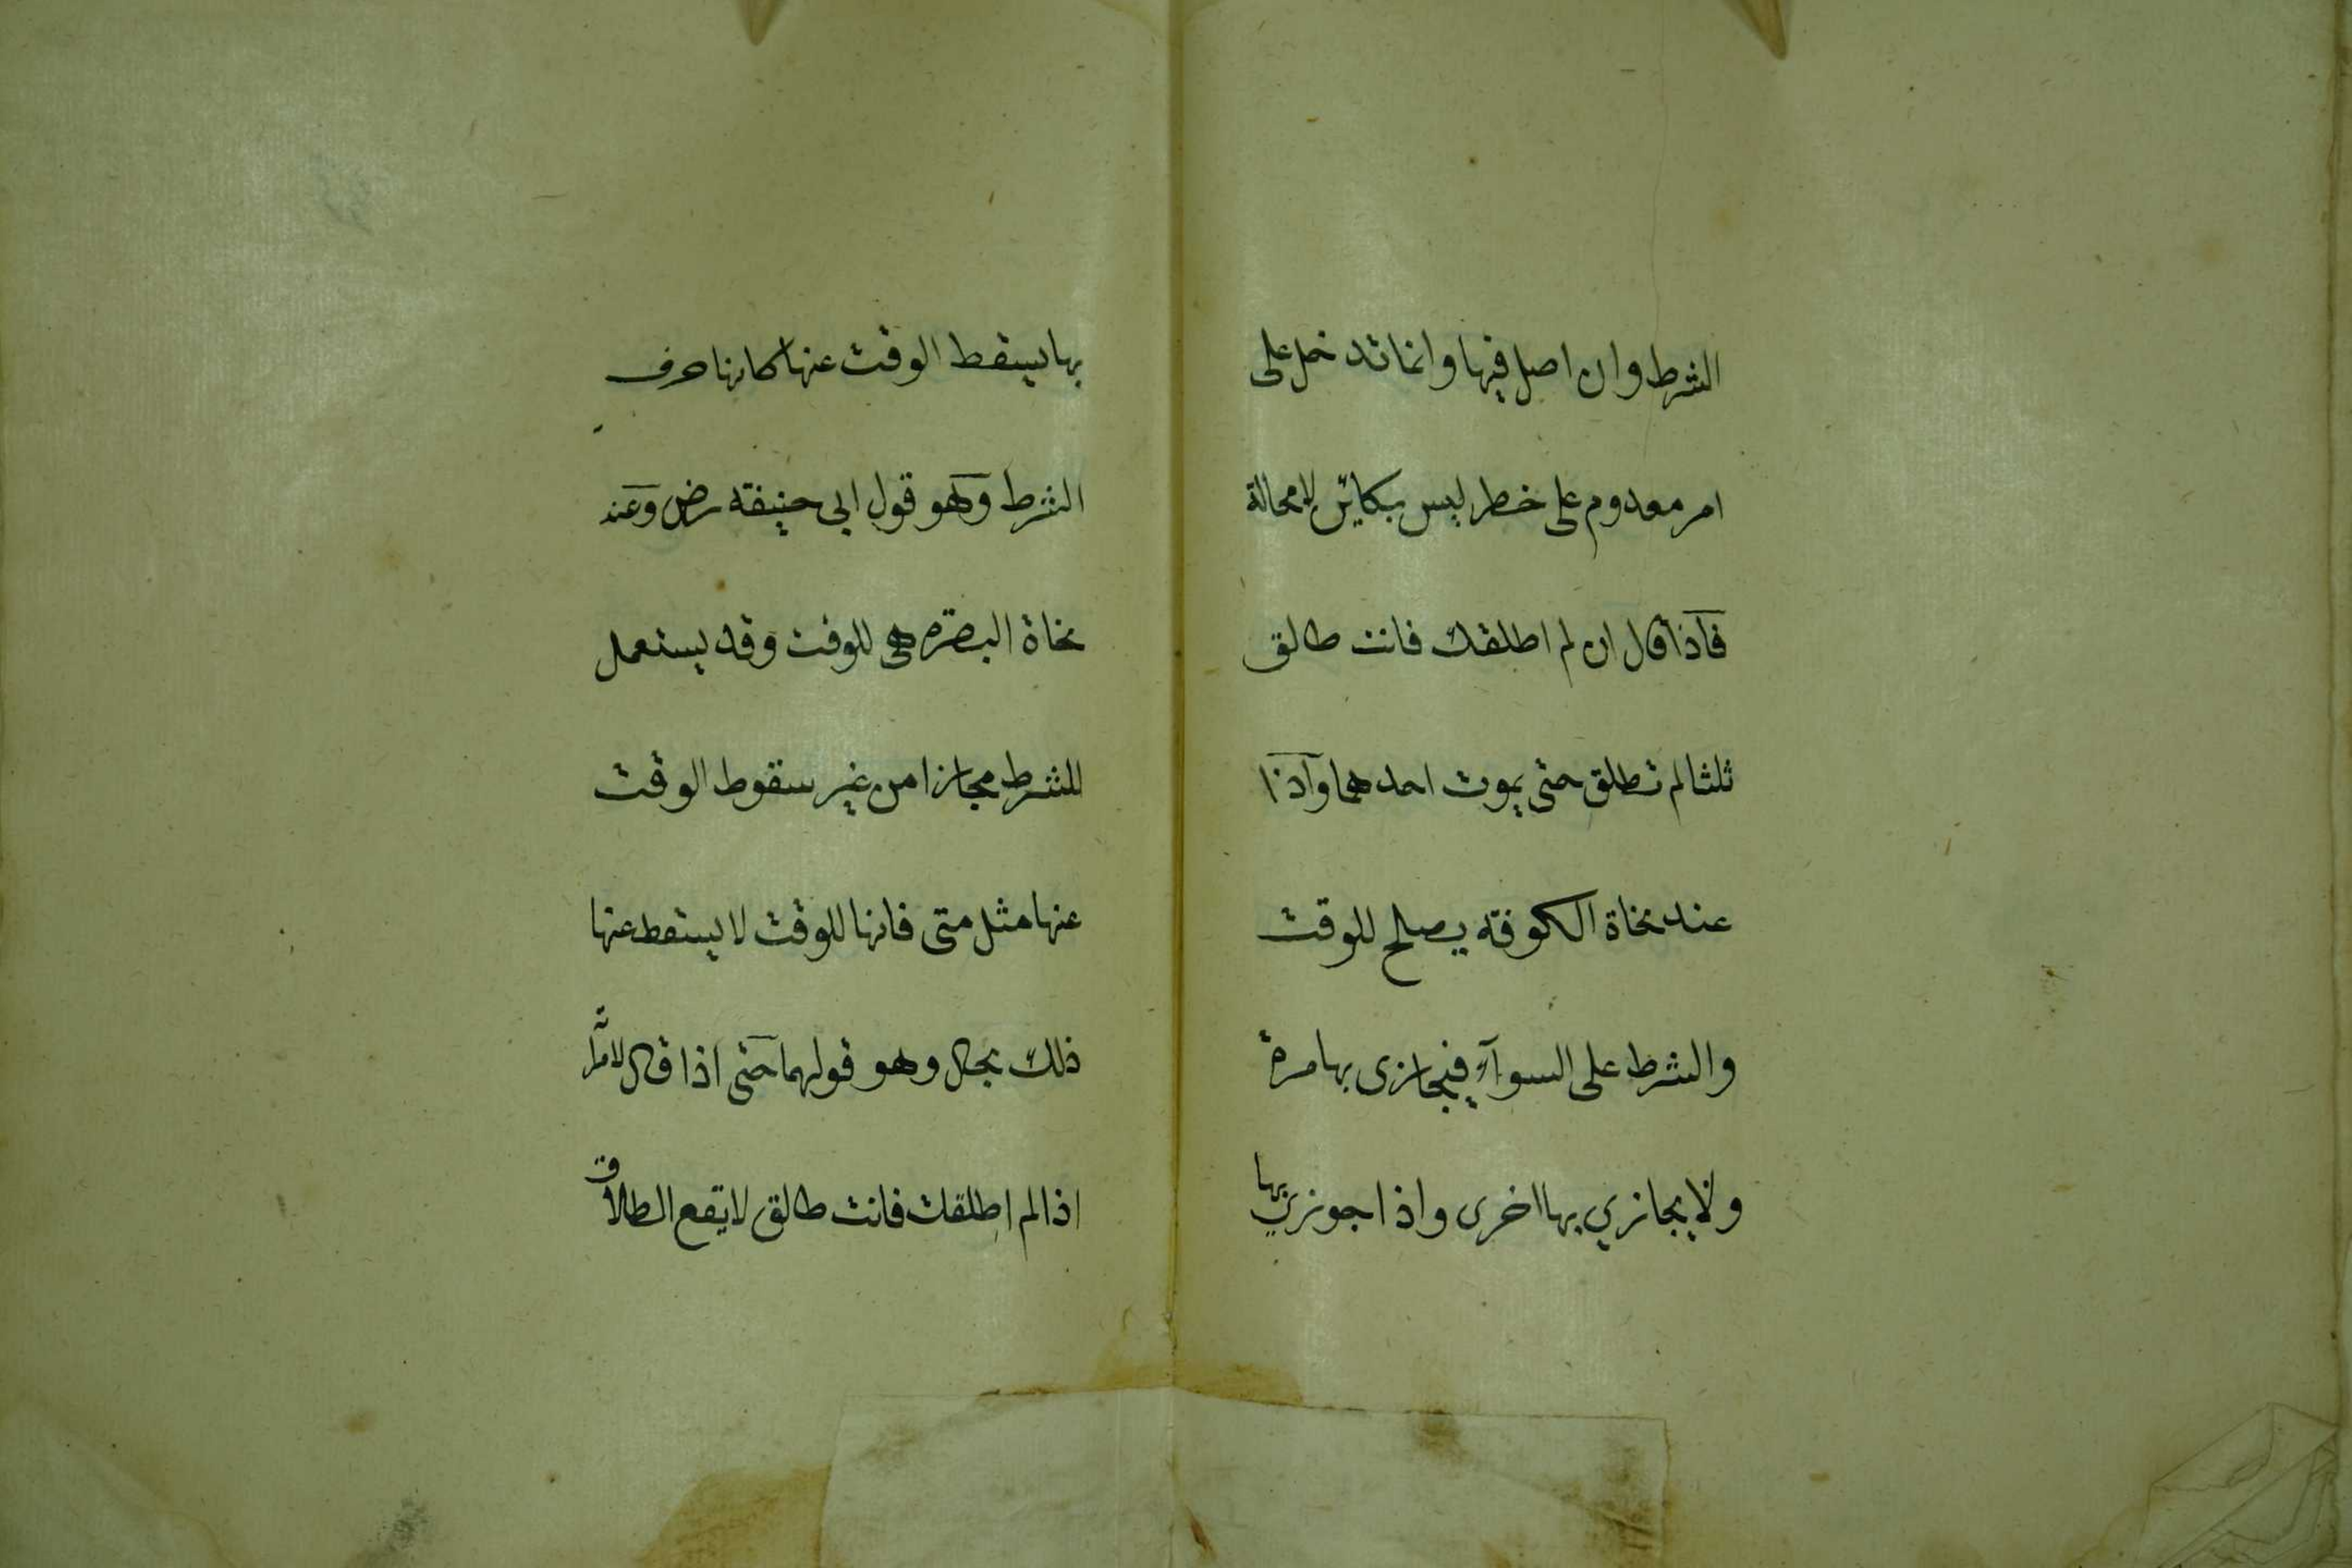 الشرط وان اصل فيها وانما تدخل على
امر معدوم على خطر ليس بكائن لا محالة
فاذا قال ان لم اطلقك فانت طالق
ثلثا لم تطلق حتى يموت احدهما واذا
عند نحاة الكوفة يصلح للوقت
والشرط على السوآء فيجازى بها مرة
ولا يجازي بها اخرى واذا جوزي بها
بها يسقط الوقت عنها كانها حرف
الشرط وهو قول ابى حنيفة رض وعند
نحاة البصرة هى للوقت وقد يستعمل
للشرط مجازا من غير سقوط الوقت
عنها مثل متى فانها للوقت لا يسقط عنها
ذلك بحال وهو قولهما حتى اذا قال لامرأته
اذا لم اطلقك فانت طالق لا يقع الطلاق